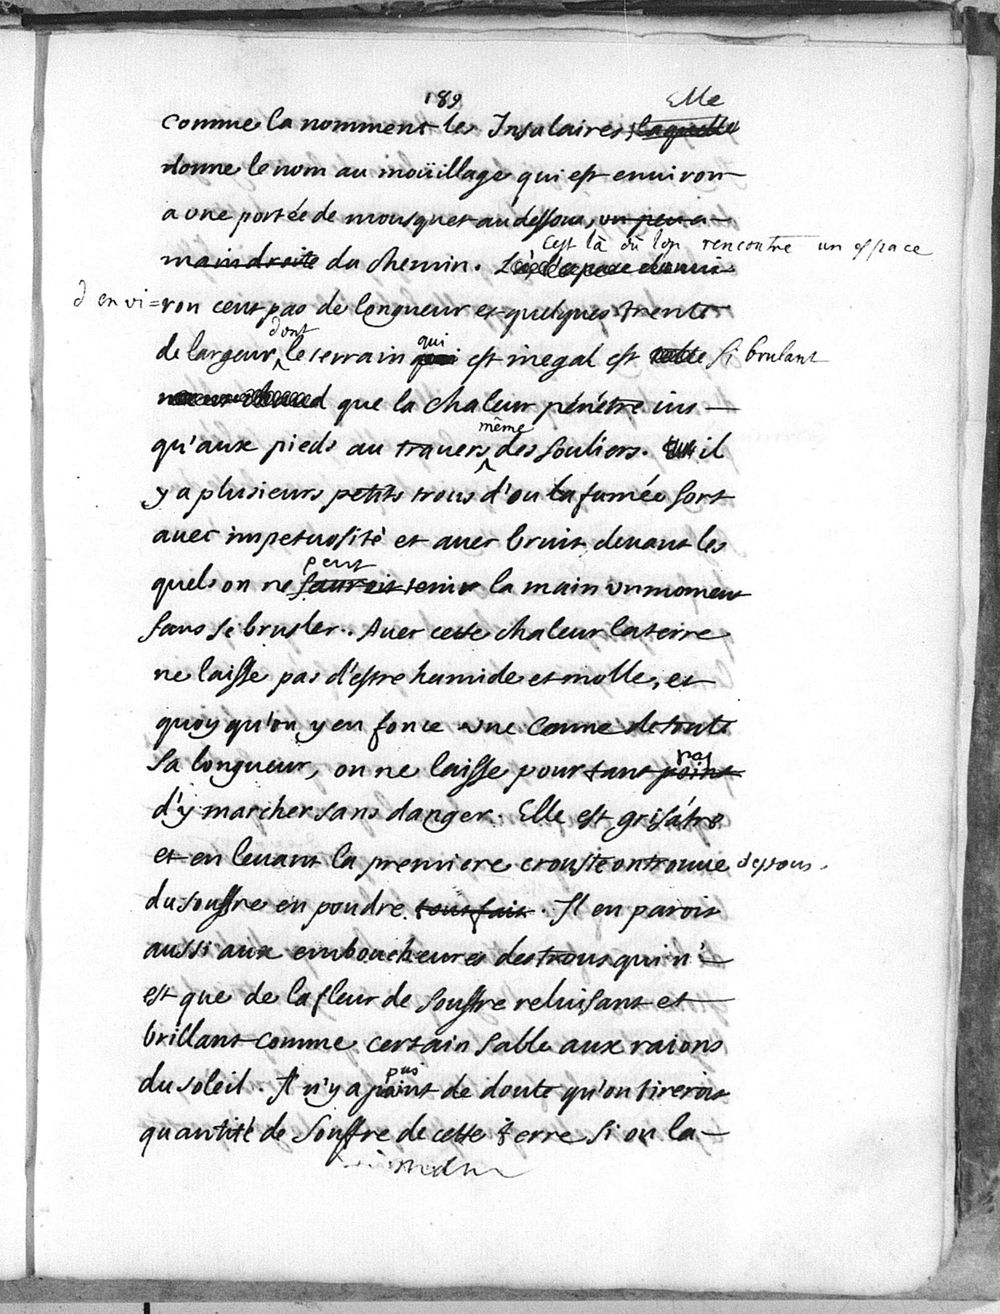 189
Elle
comme la nomment les Insulaires, laquelle
donne le nom au moüillage qui est environ
a une portée de mousquet au dessous, un peu a
main droite du chemin.
C'est là où l'on rencontre un espace
d'envi=ron cent pas de longueur et quelques trente
dont
qui
de largeur, le terrain est inegal est si brulant
que la chaleur pénétre ius
même
qu'aux pieds au travers des souliers. il
y a plusieurs petits trous d'ou la fumée sort
avec impetuosité et avec bruit devant les
peut
quels on ne sauroit tenir la main un moment
sans se brusler. Avec cette chaleur la terre
ne laisse pas d'estre humide et molle, et
quoy qu'on y enfonce une canne de toute
pas
sa longueur, on ne laisse pourtant point
d'y marcher sans danger. Elle est grisátre
et en levant la premiere crouste on trouve dessous.
du souffre en poudre tout fait. Il en paroit
aussi aux emboucheures des trous qui n'
est que de la fleur de souffre reluisant et
brillant comme certain sable aux raions
pas
du soleil. Il n'y a point de doute qu'on tireroit
quantité de souffre de cette terre si on la